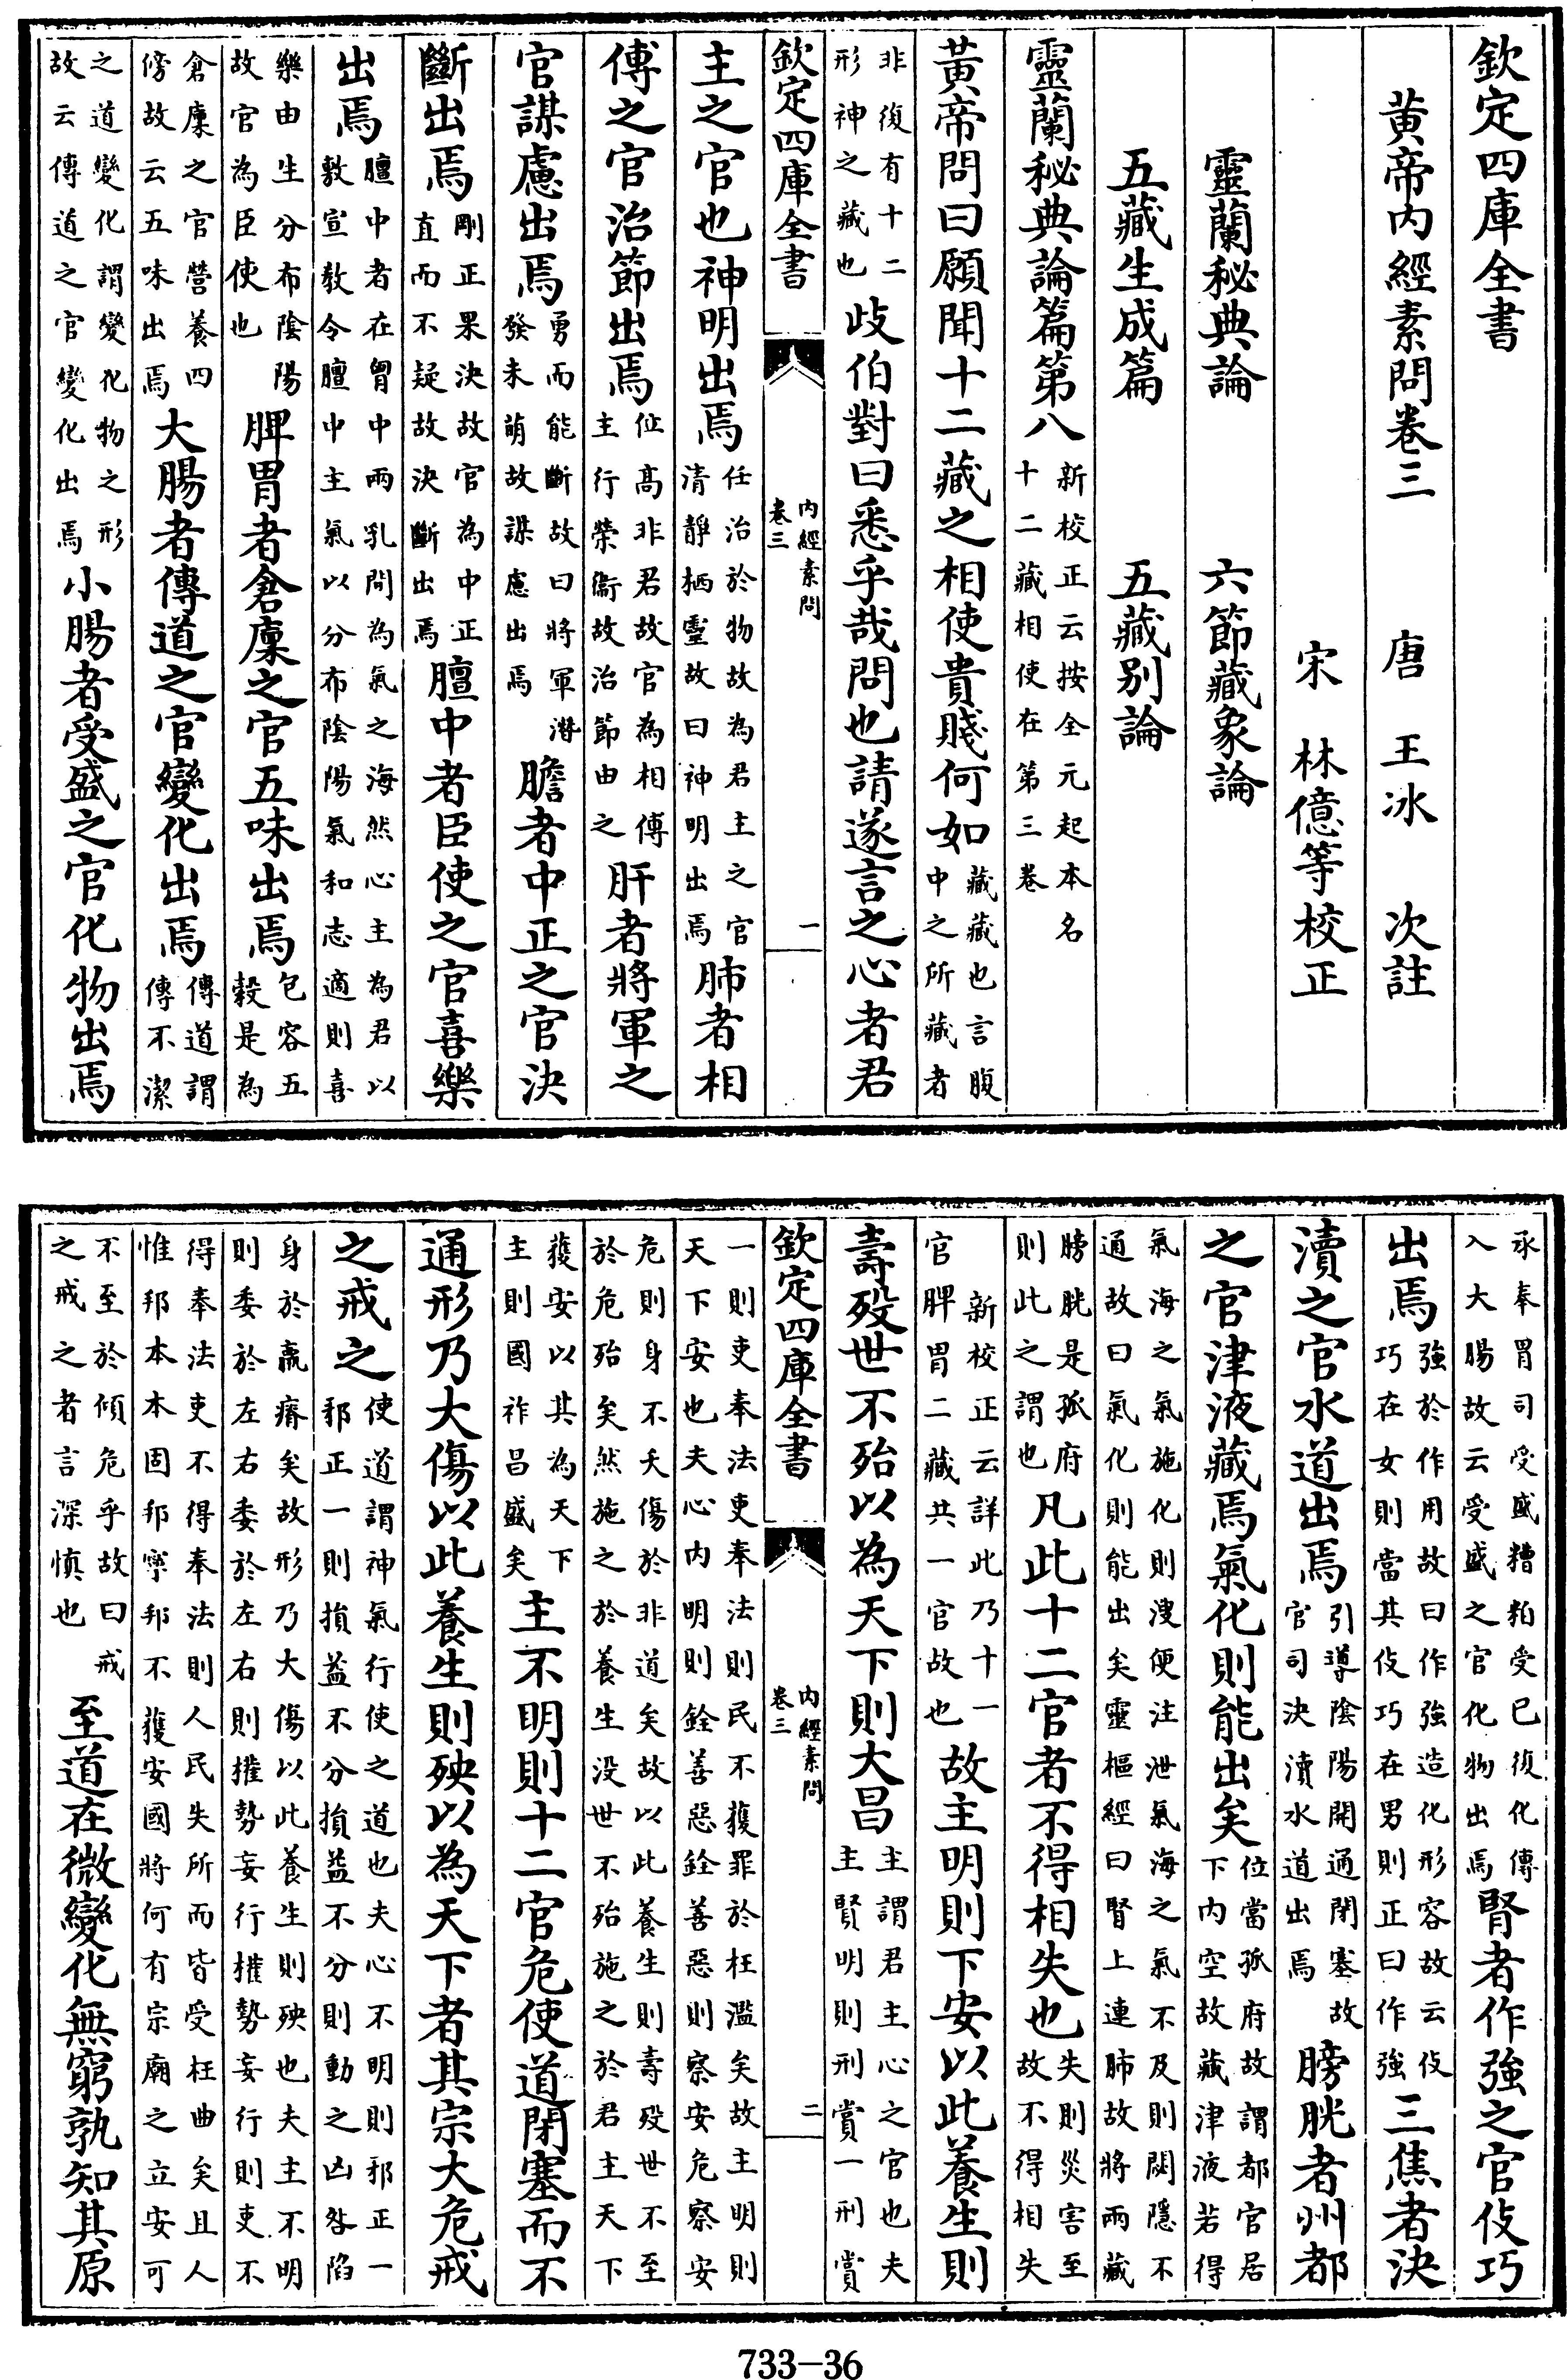 欽定四庫全書
黃帝內經素問卷三 唐 王冰 次註
宋 林億等校正
靈蘭秘典論 六節藏象論
五藏生成篇 五藏别論
靈蘭秘典論篇第八新校正云按全元起本名十二藏相使在第三卷
黃帝問曰願聞十二藏之相使貴賤何如藏藏也言腹中之所藏者
非復有十二形神之藏也歧伯對曰悉乎哉問也請遂言之心者君
欽定四庫全書 內經素問卷三 一
主之官也神明出焉任治於物故為君主之官清靜栖靈故曰神明出焉肺者相
傅之官治節出焉位髙非君故官為相傅主行榮衞故治節由之肝者將軍之
官謀慮出焉勇而能斷故曰將軍潜發未萌故謀慮出焉膽者中正之官決
斷出焉剛正果決故官為中正直而不疑故決斷出焉膻中者臣使之官喜樂
出焉膻中者在胷中兩乳間為氣之海然心主為君以敷宣教令膻中主氣以分布陰陽氣和志適則喜
樂由生分布陰陽故官為臣使也脾胃者倉廩之官五味出焉包容五穀是為
倉廩之官營養四傍故云五味出焉大腸者傳道之官變化出焉傳道謂傳不潔
之道變化謂變化物之形故云傳道之官變化出焉小腸者受盛之官化物出焉
承奉胃司受盛糟粕受已復化傳入大腸故云受盛之官化物出焉腎者作強之官伎巧
出焉強於作用故曰作強造化形容故云伎巧在女則當其伎巧在男則正曰作強三焦者決
瀆之官水道出焉引導陰陽開通閉塞故官司決瀆水道出焉膀胱者州都
之官津液藏焉氣化則能出矣位當孤府故謂都官居下內空故藏津液若得
氣海之氣施化則溲便注泄氣海之氣不及則閟隱不通故曰氣化則能出矣靈樞經曰腎上連肺故將兩藏
膀胱是孤府則此之謂也凡此十二官者不得相失也失則災害至故不得相失
新校正云詳此乃十一官脾胃二藏共一官故也故主明則下安以此養生則
壽殁世不殆以為天下則大昌主謂君主心之官也夫主賢明則刑賞一刑賞
欽定四庫全書 內經素問卷三 二
一則吏奉法吏奉法則民不獲罪於枉濫矣故主明則天下安也夫心內明則銓善惡銓善惡則察安危察安
危則身不夭傷於非道矣故以此養生則壽殁世不至於危殆矣然施之於養生没世不殆施之於君主天下
獲安以其為天下主則國祚昌盛矣主不明則十二官危使道閉塞而不
通形乃大傷以此養生則殃以為天下者其宗大危戒
之戒之使道謂神氣行使之道也夫心不明則邪正一邪正一則損益不分損益不分則動之凶咎陷
身於羸瘠矣故形乃大傷以此養生則殃也夫主不明則委於左右委於左右則權勢妄行權勢妄行則吏不
得奉法吏不得奉法則人民失所而皆受枉曲矣且人惟邦本本固邦寧邦不獲安國將何有宗廟之立安可
不至於傾危乎故曰戒之戒之者言深慎也至道在微變化無窮孰知其原
733-36